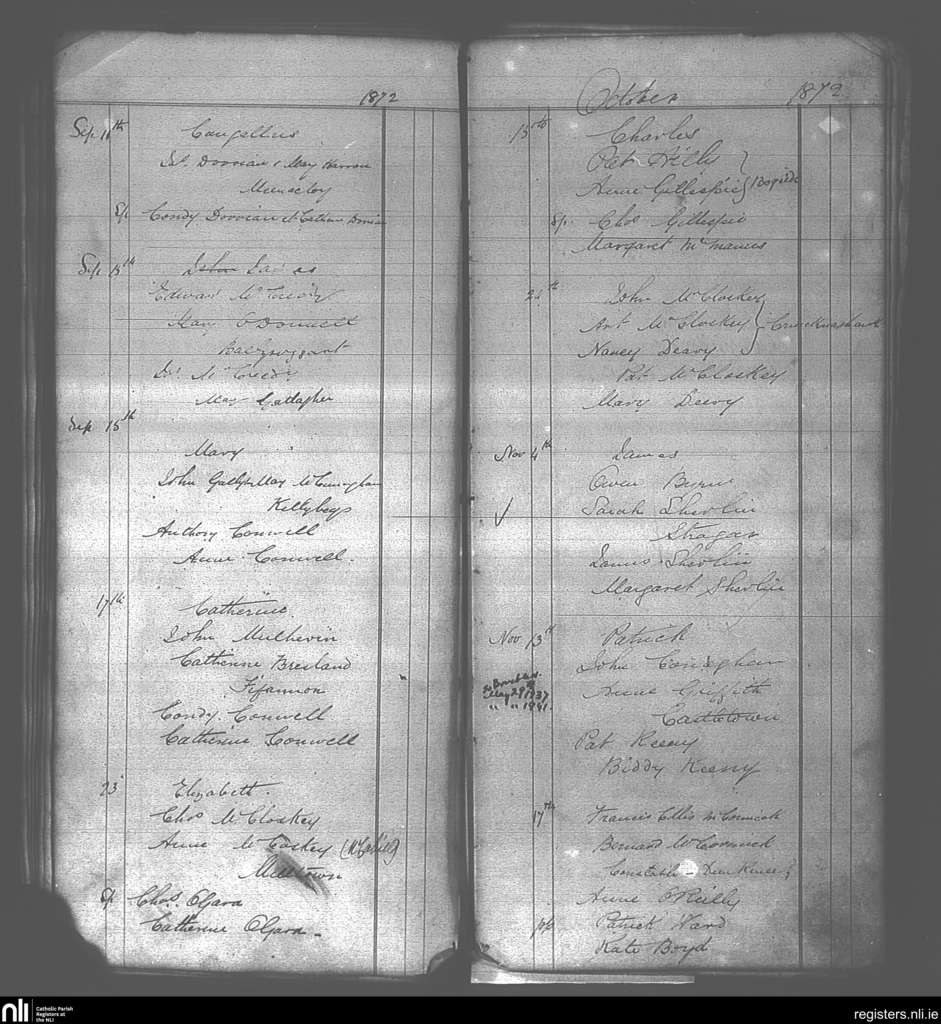 1872
Sep 11th
Ja^s. Dorrian & May Harron
Sp. Condy Dorrian & Catherine Dorrian
Sep 13th
John James
Edward McCready
Mary O'Donnell
McCready
Mary Gallagher
Sep 15th
Mary
John Gallagher Mary McCunnigham
Kellybegs
Anthony Conwell
Anne Conwell.
17th
Catherine
John Mulhevin
Catherine Bresland
Fifannon
Condy Conwell
Catherine Conwell
23
Elizabeth
Chas McCloskey
Anne McCoskey
Milltown
Sp Chas. OGara
Catherine OGara
October 1872
15th Charles
Pat
Anne Gillespie
Sp. Chas Gillespie
Margaret McManus
24th John McCloskey
Ant McCloskey
Nancy Deavy
Pat McCloskey
Mary Deevy
Nov 4th James
Owen Byrne
Sarah Shevlin
Stragar
James Shevlin
Margaret Shevlin
Nov 13th Patrick
John Conigham
Anne Griffith
Castletown
May 29 1937
" " 1941.
Pat Keeny
Biddy Keeny
17th Francis Ellis McCormick
Bernard McCormick
Constable
Anne O'Reilly
Patrick Ward
Kate Boyd
nli
Catholic Parish
Registers at
the NLI
registers.nli.ie